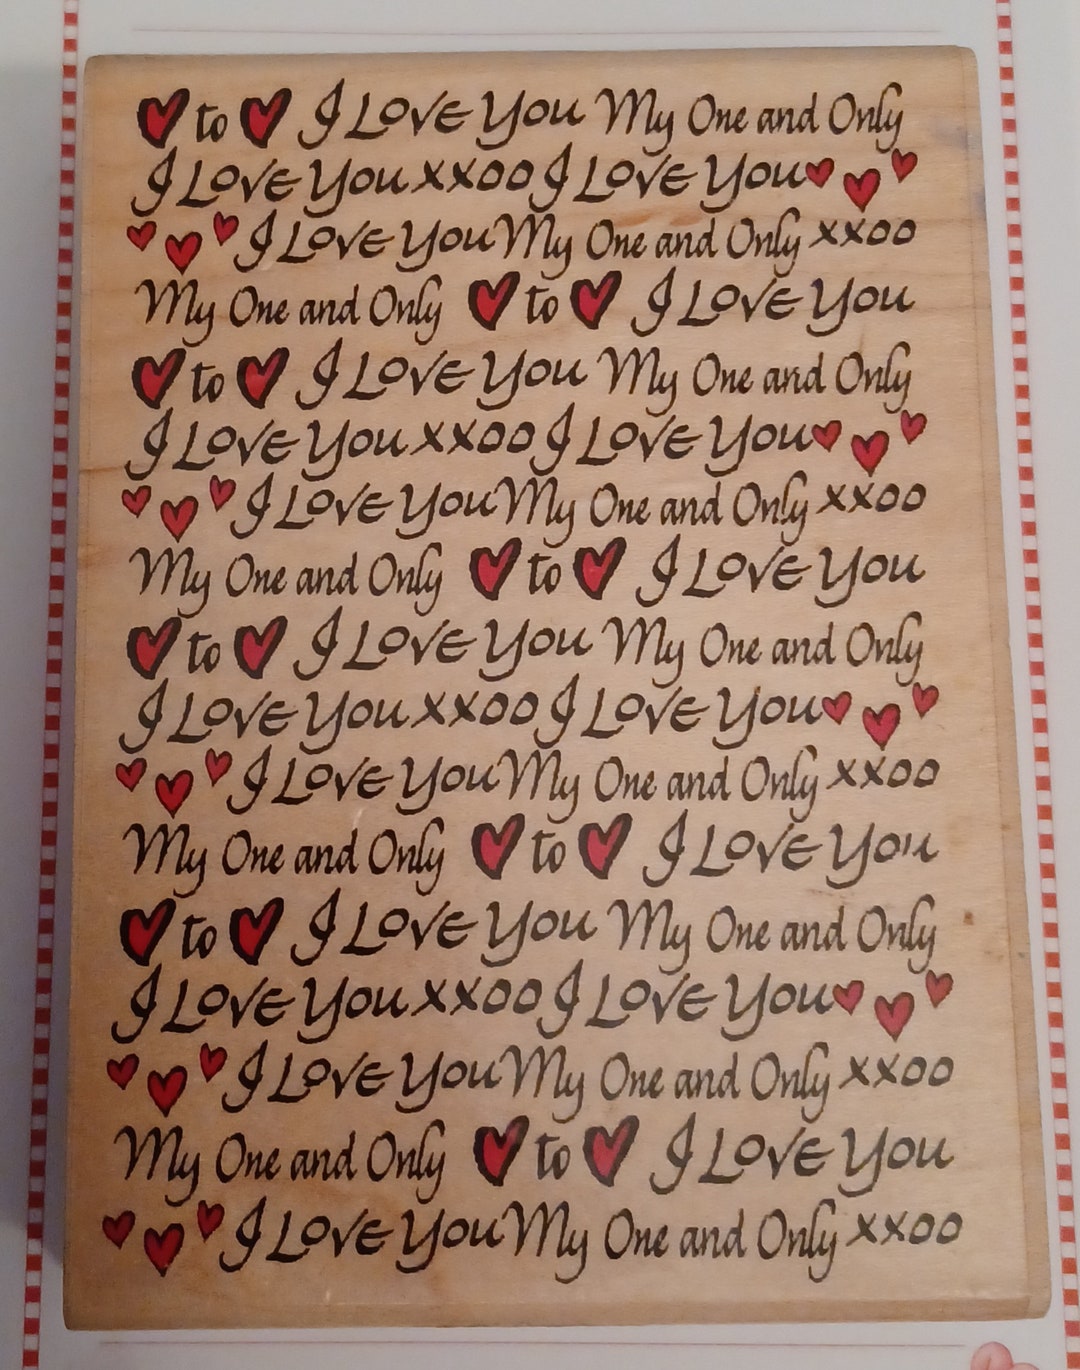 ♥ to ♥ I Love You My One and Only
I Love You xxoo I Love You ♥ ♥ ♥
♥ ♥ ♥ I Love You My One and Only xxoo
My One and Only ♥ to ♥ I Love You
♥ to ♥ I Love You My One and Only
I Love You xxoo I Love You ♥ ♥ ♥
♥ ♥ ♥ I Love You My One and Only xxoo
My One and Only ♥ to ♥ I Love You
♥ to ♥ I Love You My One and Only
I Love You xxoo I Love You ♥ ♥ ♥
♥ ♥ ♥ I Love You My One and Only xxoo
My One and Only ♥ to ♥ I Love You
♥ to ♥ I Love You My One and Only
I Love You xxoo I Love You ♥ ♥ ♥
♥ ♥ ♥ I Love You My One and Only xxoo
My One and Only ♥ to ♥ I Love You
♥ ♥ ♥ I Love You My One and Only xxoo